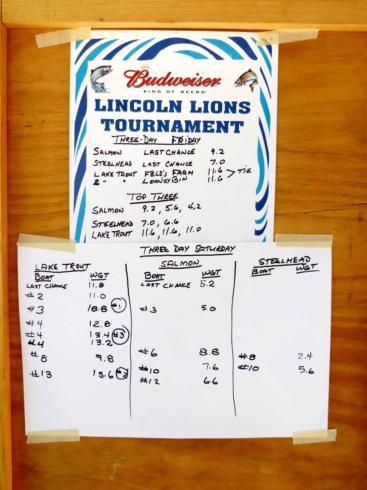 Budweiser
KING OF BEERS
LINCOLN LIONS
TOURNAMENT
THREE-DAY FRIDAY
SALMON LAST CHANCE 9.2
STEELHEAD LAST CHANCE 7.0
LAKE TROUT FELD'S FARM 11.6 > TIE
& " " LOONEY BIN 11.6
TOP THREE
SALMON 9.2, 5.6, 4.2
STEELHEAD 7.0, 6.6
LAKE TROUT 11.6, 11.6, 11.0
THREE DAY SATURDAY
LAKE TROUT
BOAT WGT
LAST CHANCE 11.8
#2 11.0
#3 18.8 #1
#4 12.8
#4 13.4 #3
#4 13.2
#8 9.8
#13 15.6 #2
SALMON
BOAT WGT
LAST CHANCE 5.2
#3 5.0
#6 8.8
#10 7.6
#12 6.6
STEELHEAD
BOAT WGT
#8 2.4
#10 5.6